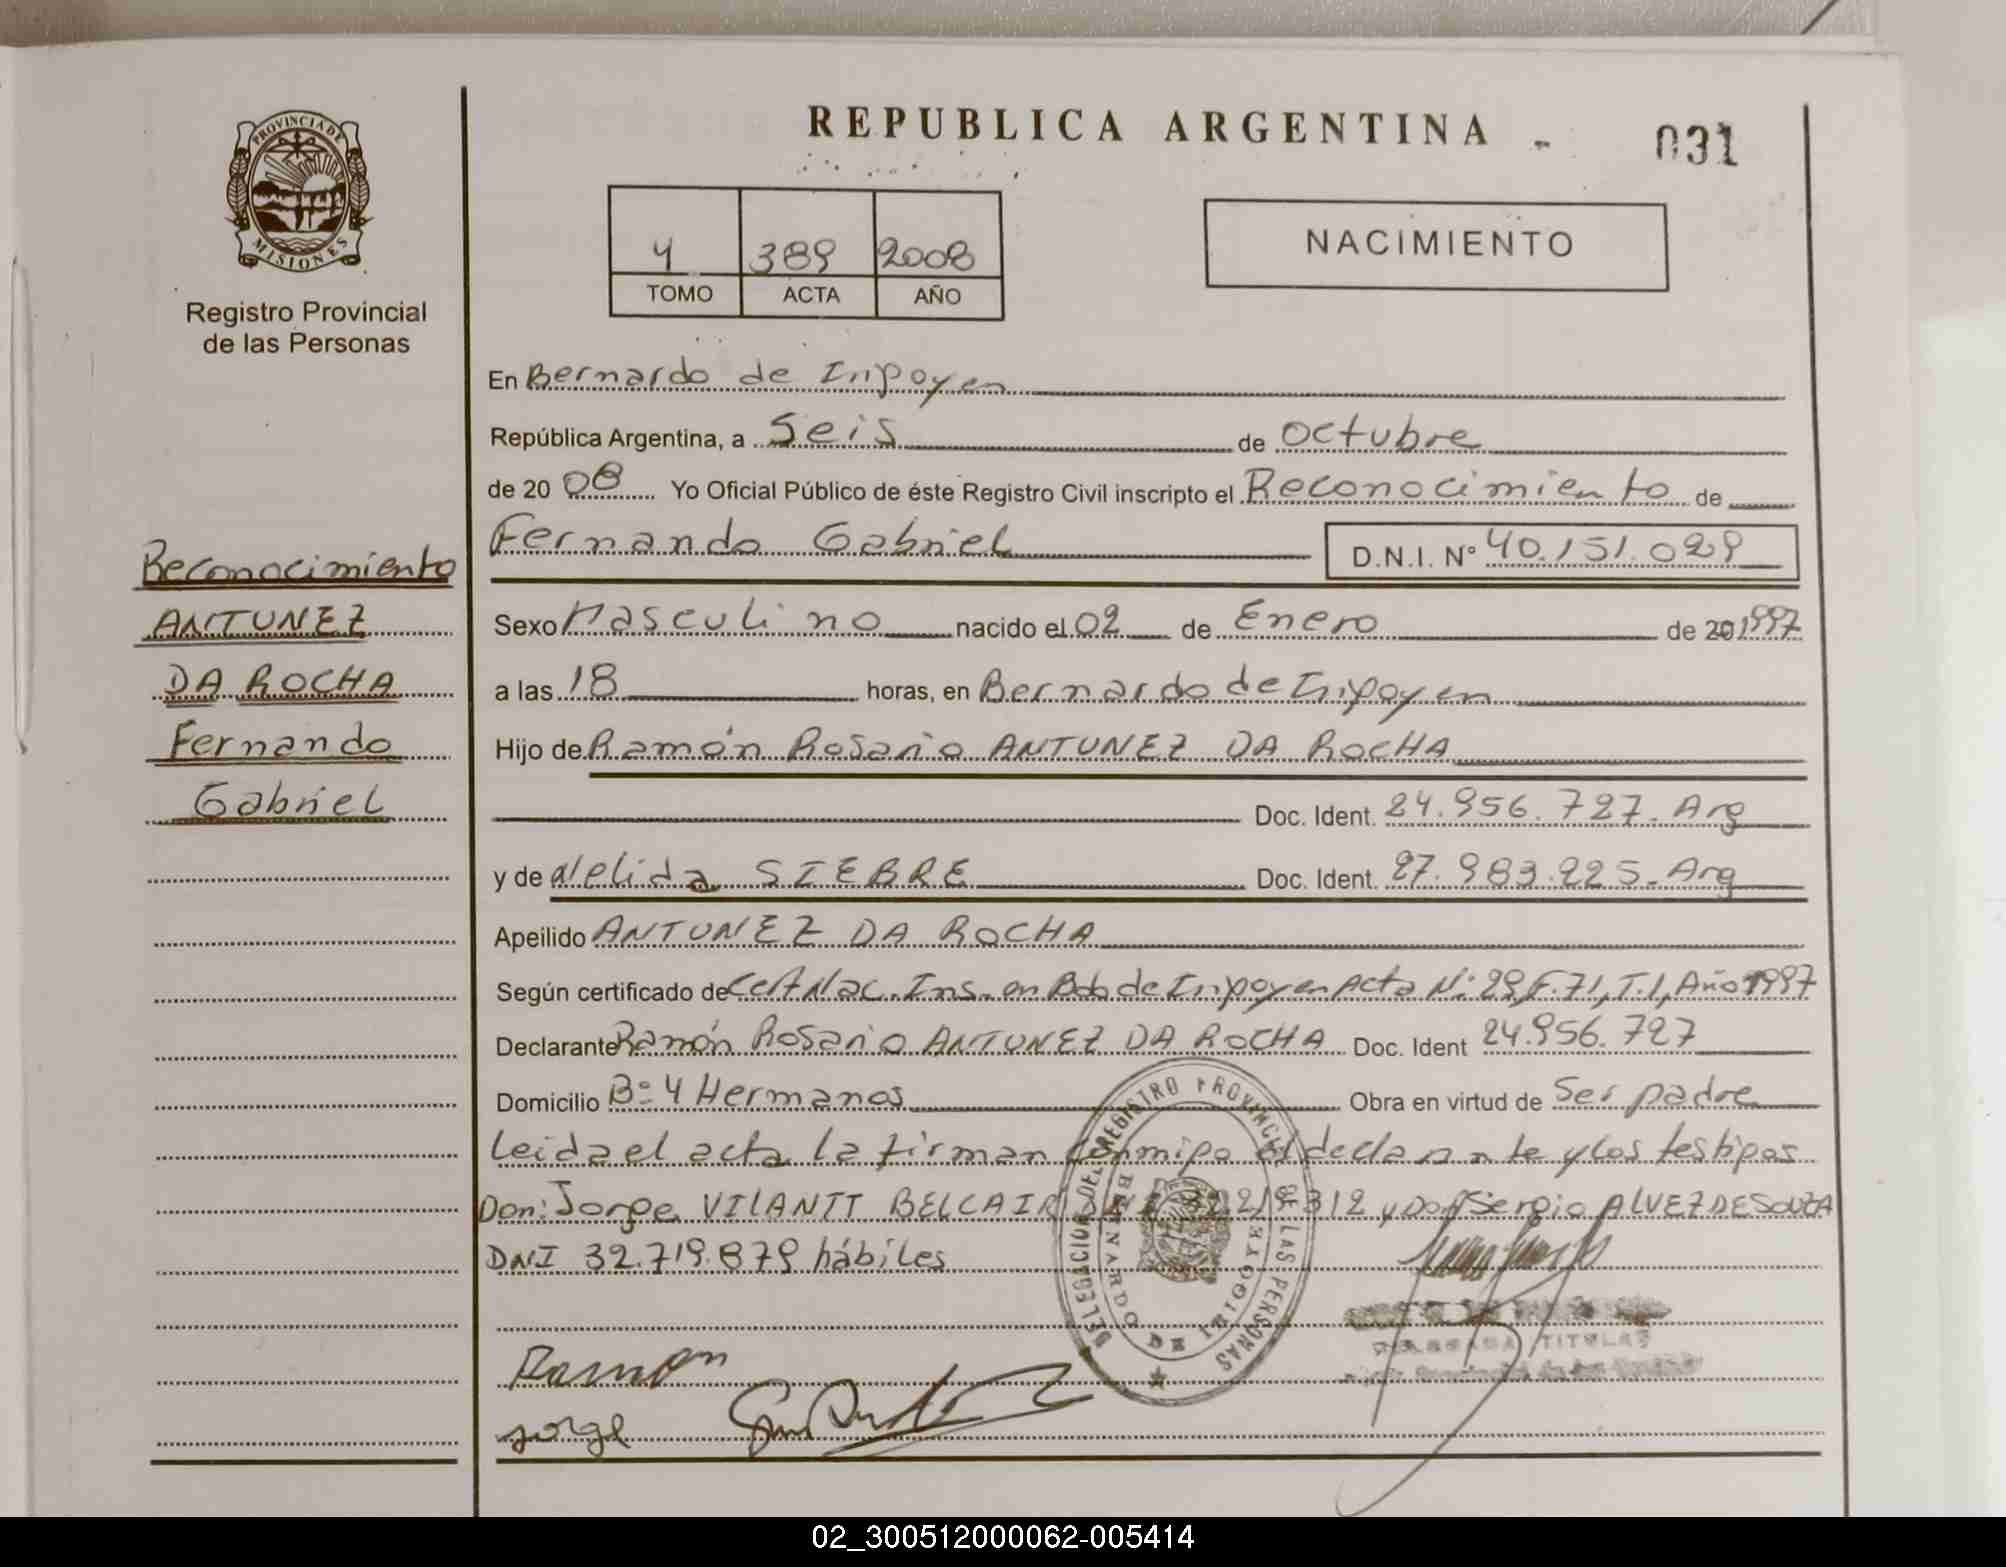 REPUBLICA ARGENTINA
031
PROVINCIA DE
MISIONES
Registro Provincial
de las Personas
4 389 2008
TOMO ACTA AÑO
NACIMIENTO
En Bernardo de Irigoyen
República Argentina, a Seis de octubre
de 20 08 Yo Oficial Público de éste Registro Civil inscripto el Reconocimiento de
Fernando Gabriel D.N.I. Nº 40.151.029
Reconocimiento
ANTUNEZ
DA ROCHA
Fernando
Gabriel
Sexo Masculino nacido el 02 de Enero de 20 1997
a las 18 horas, en Bernardo de Irigoyen
Hijo de Ramón Rosario ANTUNEZ DA ROCHA
Doc. Ident. 24.956.727. Arg
y de Nelida SIEBRE Doc. Ident. 27.983.225. Arg
Apellido ANTUNEZ DA ROCHA
Según certificado de Cert Nac. Ins. en Bdo de Irigoyen Acta Nº 29, F.71, T.1, Año 1997
Declarante Ramón Rosario ANTUNEZ DA ROCHA Doc. Ident 24.956.727
Domicilio Bº 4 Hermanos Obra en virtud de Ser padre
Leida el acta la firman conmigo el declarante y los testigos
Don: Jorge VILANTT BELCAIR y Don Sergio ALVEZ DE SOUZA
DNI 32.719.879 hábiles
DELEGACION DEL REGISTRO PROVINCIAL DE LAS PERSONAS
BERNARDO DE IRIGOYEN
TITULAR
Ramon
Jorge
02_300512000062-005414